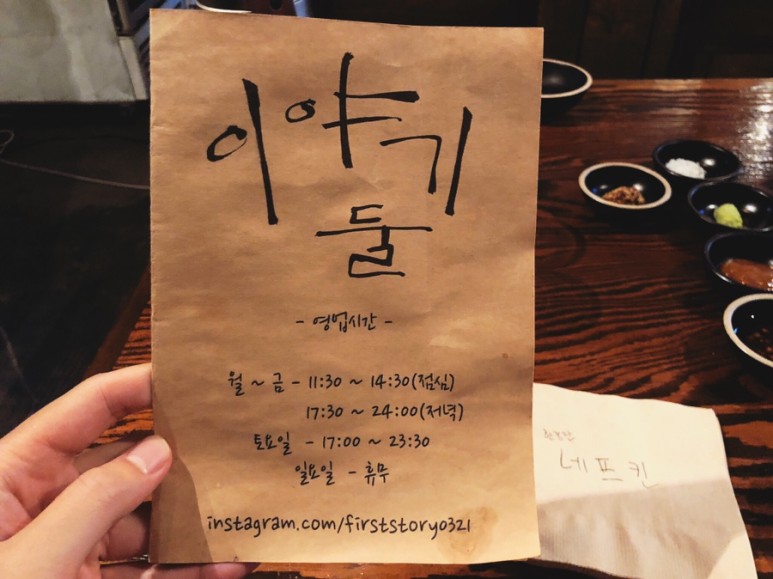 이야기
둘
- 영업시간 -
월 ~ 금 - 11:30 ~ 14:30(점심)
17:30 ~ 24:00(저녁)
토요일 - 17:00 ~ 23:30
일요일 - 휴무
instagram.com/firststory0321
네프킨